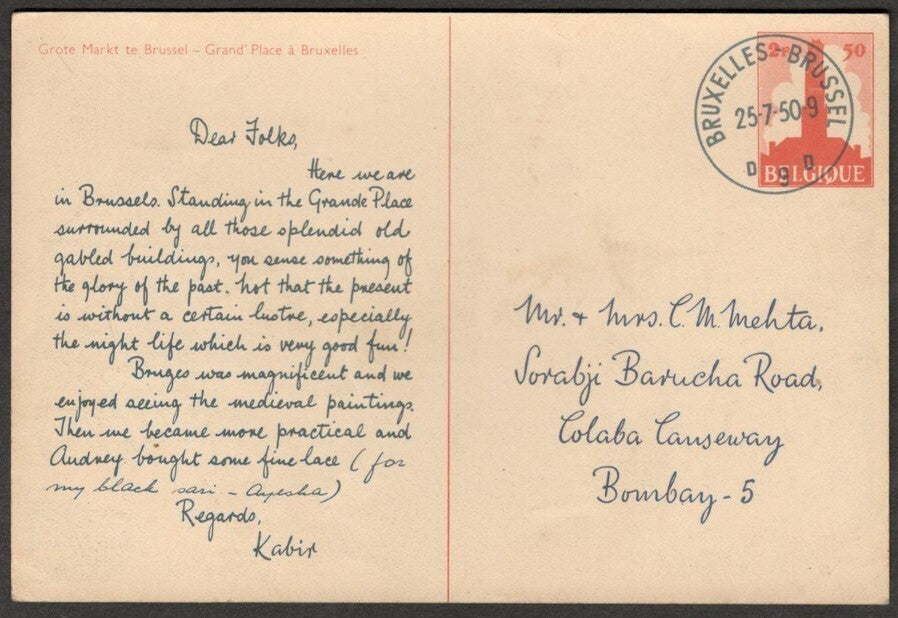 Grote Markt te Brussel – Grand' Place à Bruxelles
Dear Folks,
Here we are
in Brussels. Standing in the Grande Place
surrounded by all those splendid old
gabled buildings, you sense something of
the glory of the past. Not that the present
is without a certain lustre, especially
the night life which is very good fun!
Bruges was magnificent and we
enjoyed seeing the medieval paintings.
Then we became more practical and
Audrey bought some fine lace (for
my black sari – Ayesha)
Regards,
Kabir
BRUXELLES-BRUSSEL
25-7-50-9
D 9 D
2F 50
BELGIQUE
Mr. + Mrs. C. M. Mehta.
Sorabji Barucha Road,
Colaba Causeway
Bombay - 5